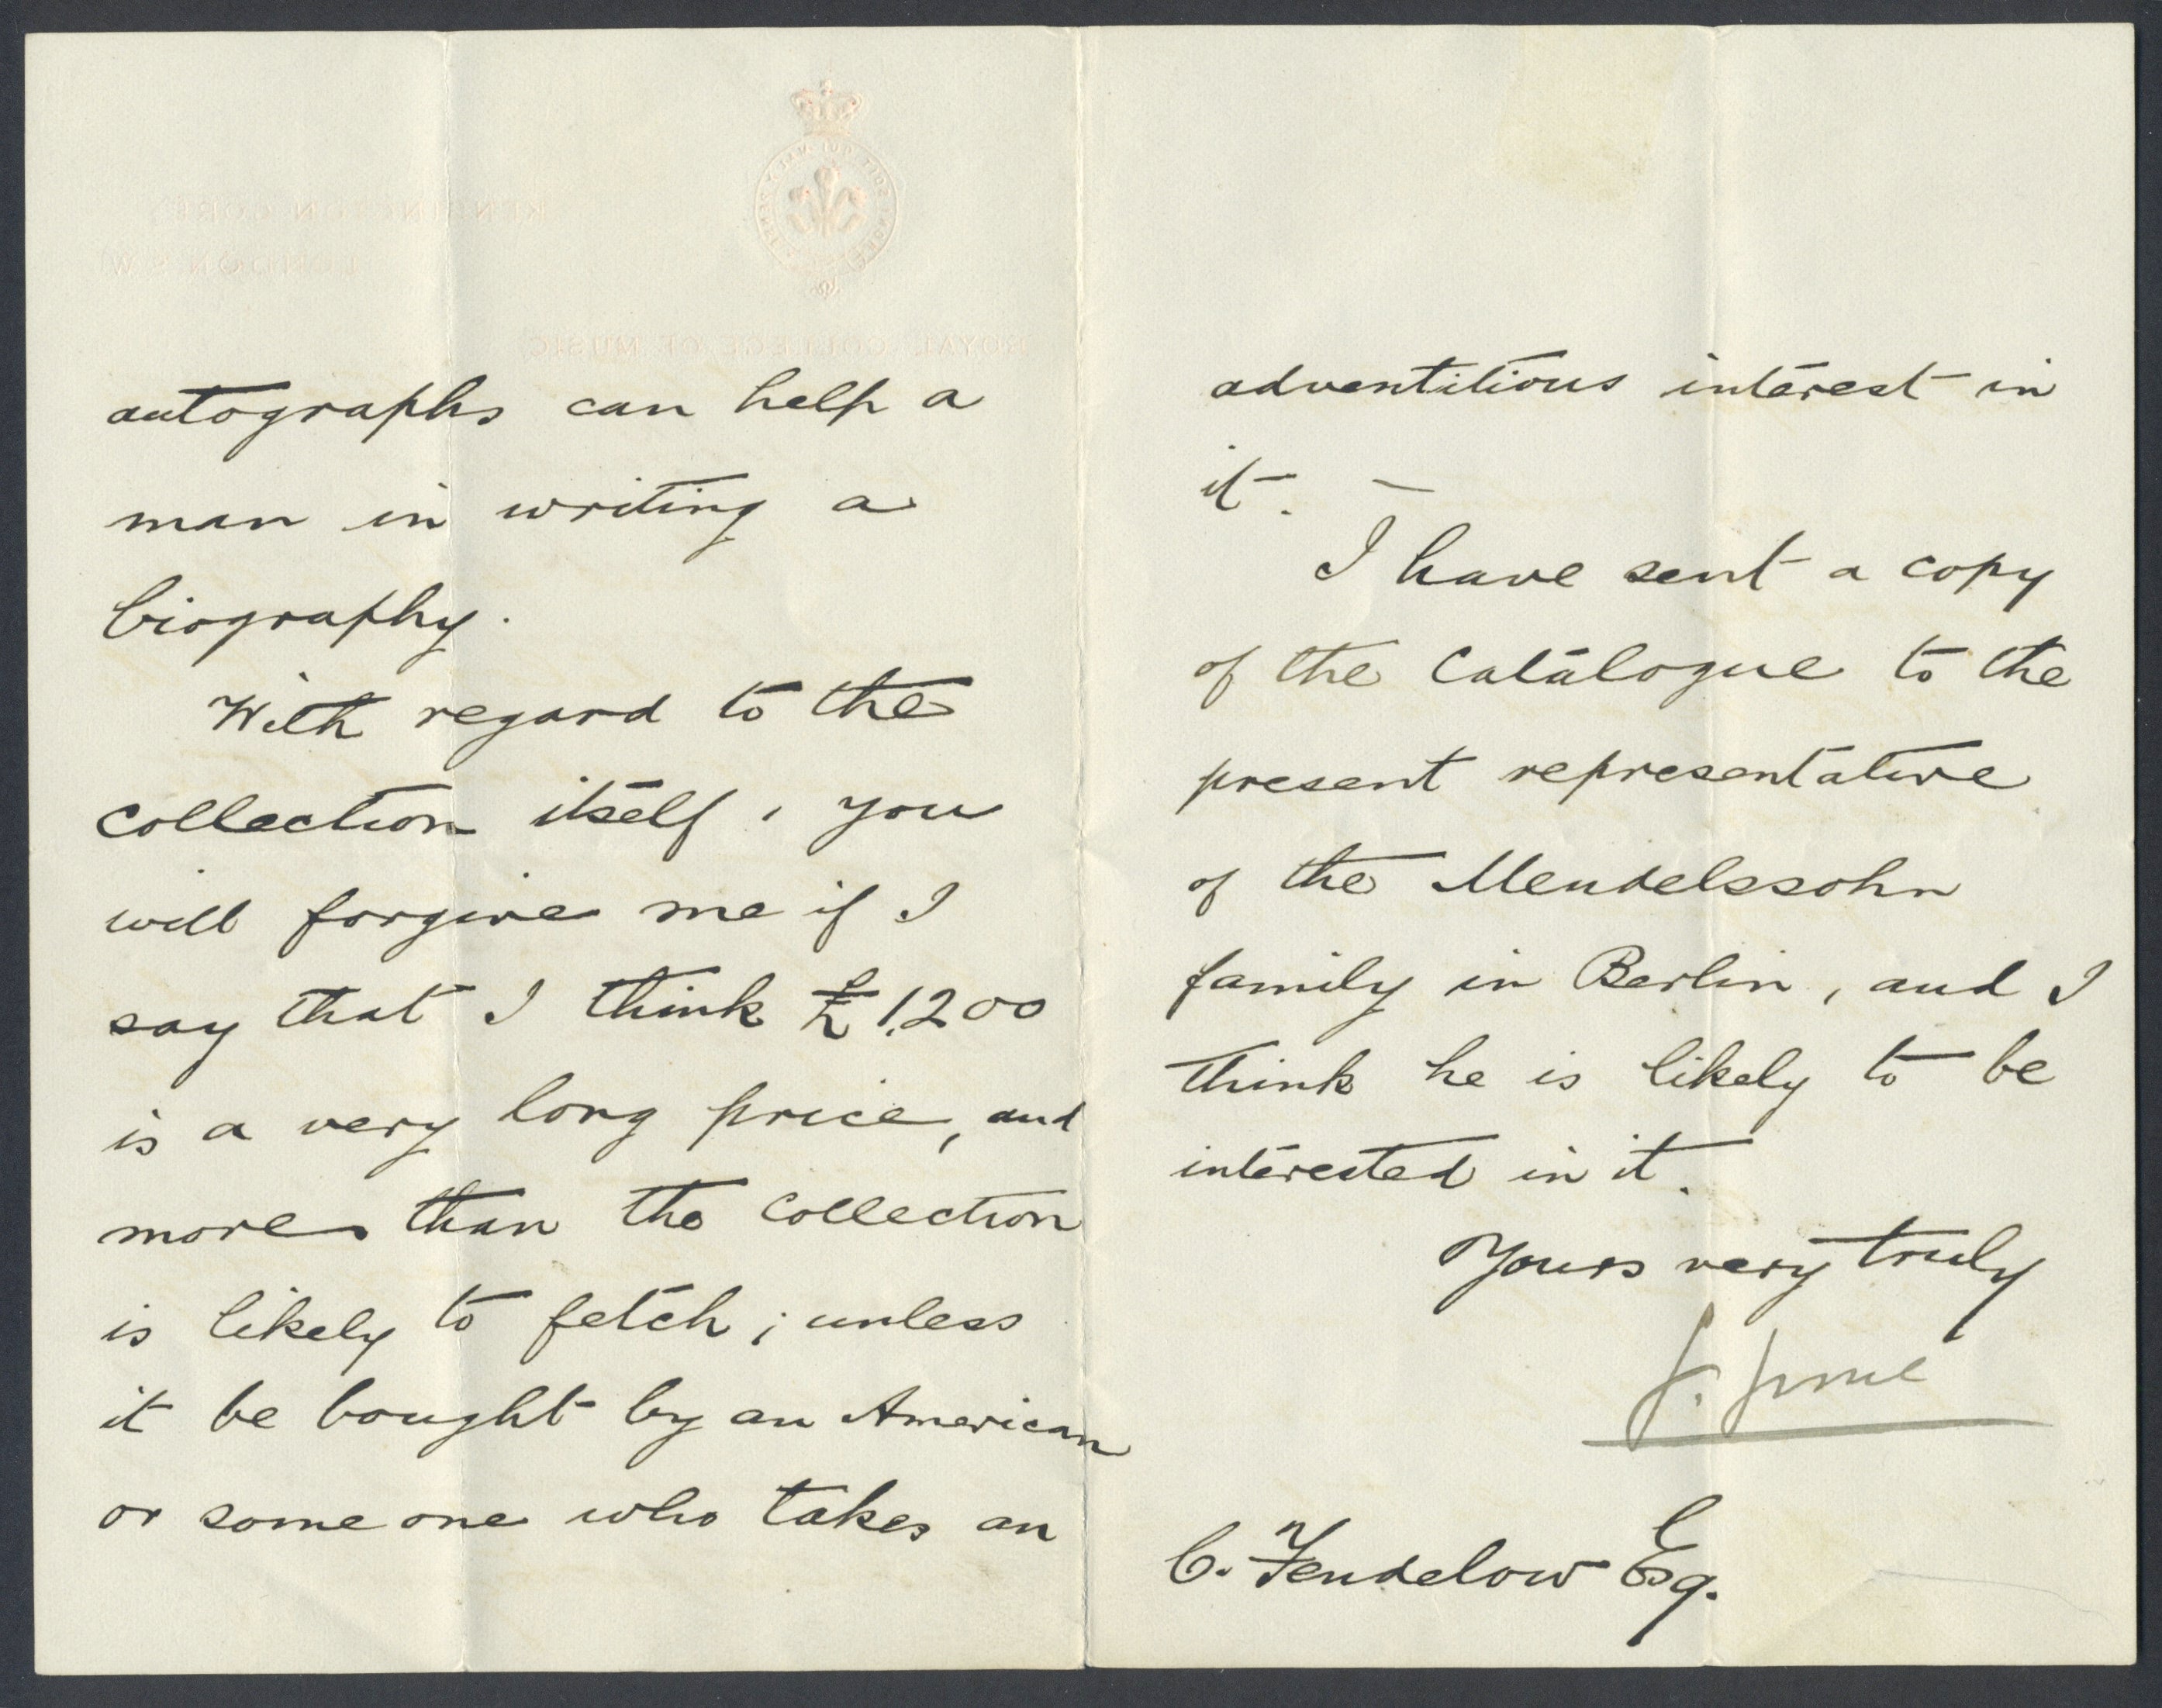 KENSINGTON GORE,
LONDON S.W.
ROYAL COLLEGE OF MUSIC
autographs can help a
man in writing a
biography.
With regard to the
collection itself, you
will forgive me if I
say that I think £1,200
is a very long price, and
more than the collection
is likely to fetch; unless
it be bought by an American
or some one who takes an
adventitious interest in
it. —
I have sent a copy
of the Catalogue to the
present representative
of the Mendelssohn
family in Berlin, and I
think he is likely to be
interested in it.
Yours very truly
C. Fendelow Esq.